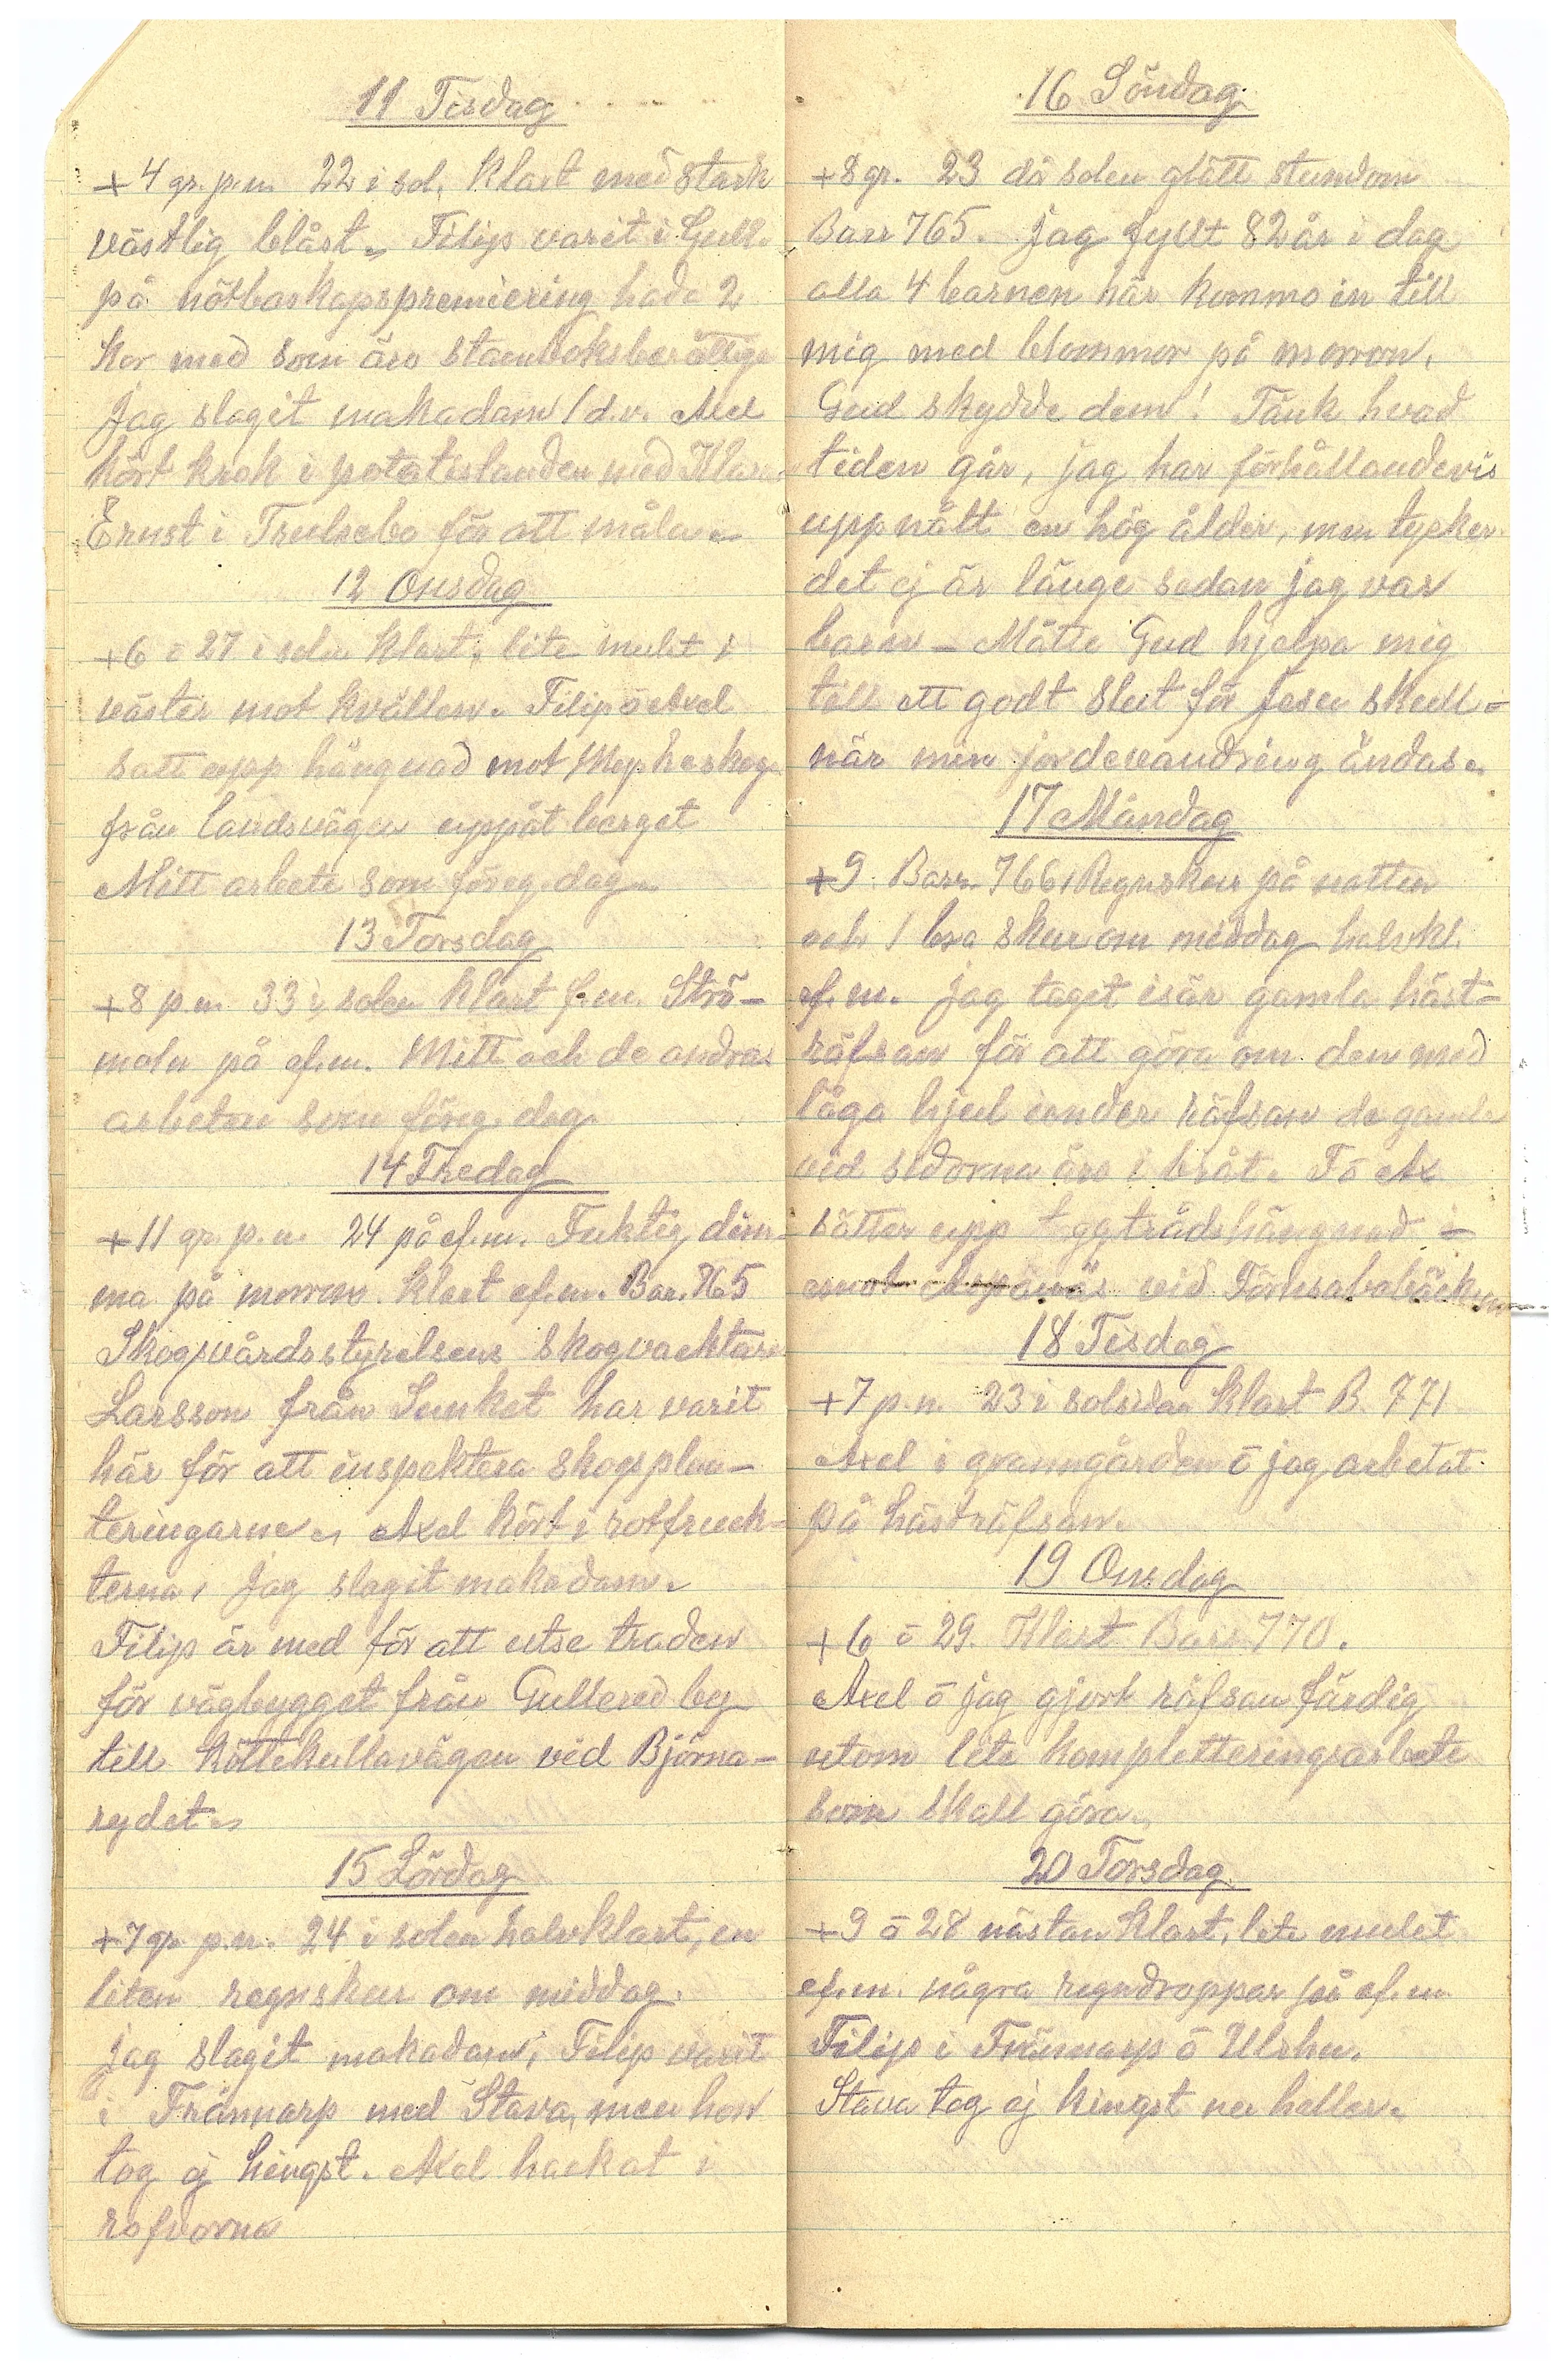 11 Tisdag
+4 gr. p.m. 22 i sol. Klart med stark
västlig blåst. Filip varit i Gull.
på nötboskapspremiering hade 2
kor med som äro stamboksberättiga
Jag slagit makadam 1 d.v. Axel
kört krok i potatislanden med
Ernst i Trulsebo för att måla.
12 Onsdag
+6 ō 27 i solen Klart, lite mulet i
väster mot kvällen. Filip ō Axel
satt upp hängnad mot
från landsvägen uppåt berget
Mitt arbete som föreg. dag.
13 Torsdag
+8 p.m. 33 i solen Klart f.m. Strö-
moln på ef.m. Mitt och de andras
arbeten som föreg. dag.
14 Fredag
+11 gr. p.m. 24 på ef.m. Fuktig dim-
ma på morron. Klart ef.m. Bar. 765
Skogsvårdsstyrelsens skogvaktare
Larsson från Sunket har varit
här för att inspektera skogsplan-
teringarne. Axel kört i rotfruck-
terna, Jag slagit makadam.
Filip är med för att utse traden
för vägbygget från Gullered by
till Köttekullavägen vid Björna-
rydet.
15 Lördag
+7 gr p.m. 24 i solen halvklart, en
liten regnskur om middag.
Jag slagit makadam, Filip varit
i Trännarp med Stava, men hon
tog ej hingst. Axel hackat i
rofvorna
16 Söndag
+8 gr. 23 då solen glätt stundom
Barr 765. Jag fyllt 82 år i dag
alla 4 barnen här kommo in till
mig med blommor på morron.
Gud skydde dem! Tänk hvad
tiden går, jag har förhållandevis
uppnått en hög ålder, men tycker
det ej är länge sedan jag var
barn – Måtte Gud hjelpa mig
till ett godt slut för Jesu skull-
när min jordevandring ändas.
17 Måndag
+9. Barr. 766, Regnskur på natten
och 1 bra skur om middag halvkl.
ef.m. Jag taget isär gamla häst-
räfsan för att göra om den med
låga hjul under räfsan de gamla
vid sidorna äro i bråt. F ō Ax
sätter upp taggtrådshängnad -
emot Aspanäs vid
18 Tisdag
+7 p.m. 23 i solsidan Klart B. 771
Axel i granngården ō jag arbetat
på hästräfsan.
19 Onsdag
+6 ō 29. Klart Barr 770.
Axel ō jag gjort räfsan färdig
utom lite kompletteringsarbete
som skall göra.
20 Torsdag
+9 ō 28 nästan Klart, lite mulet
ef.m. några regndroppar på ef.m
Filip i Trännarp ō Ulrhn.
Stava tog ej hingst nu heller.